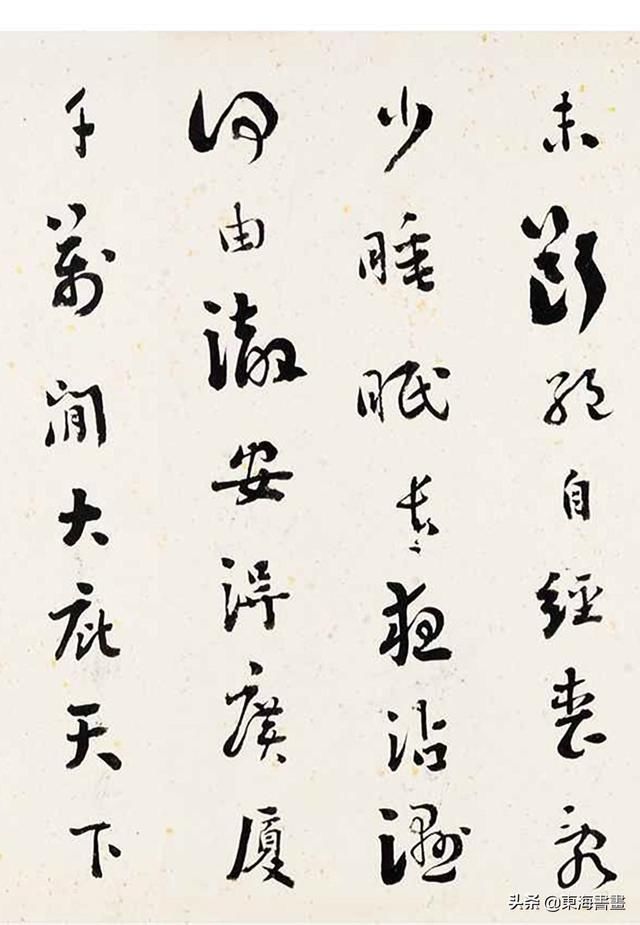 未斷絕自經喪亂
少睡眠長夜沾濕
何由徹安得廣廈
千萬間大庇天下
头条 @東海書畫